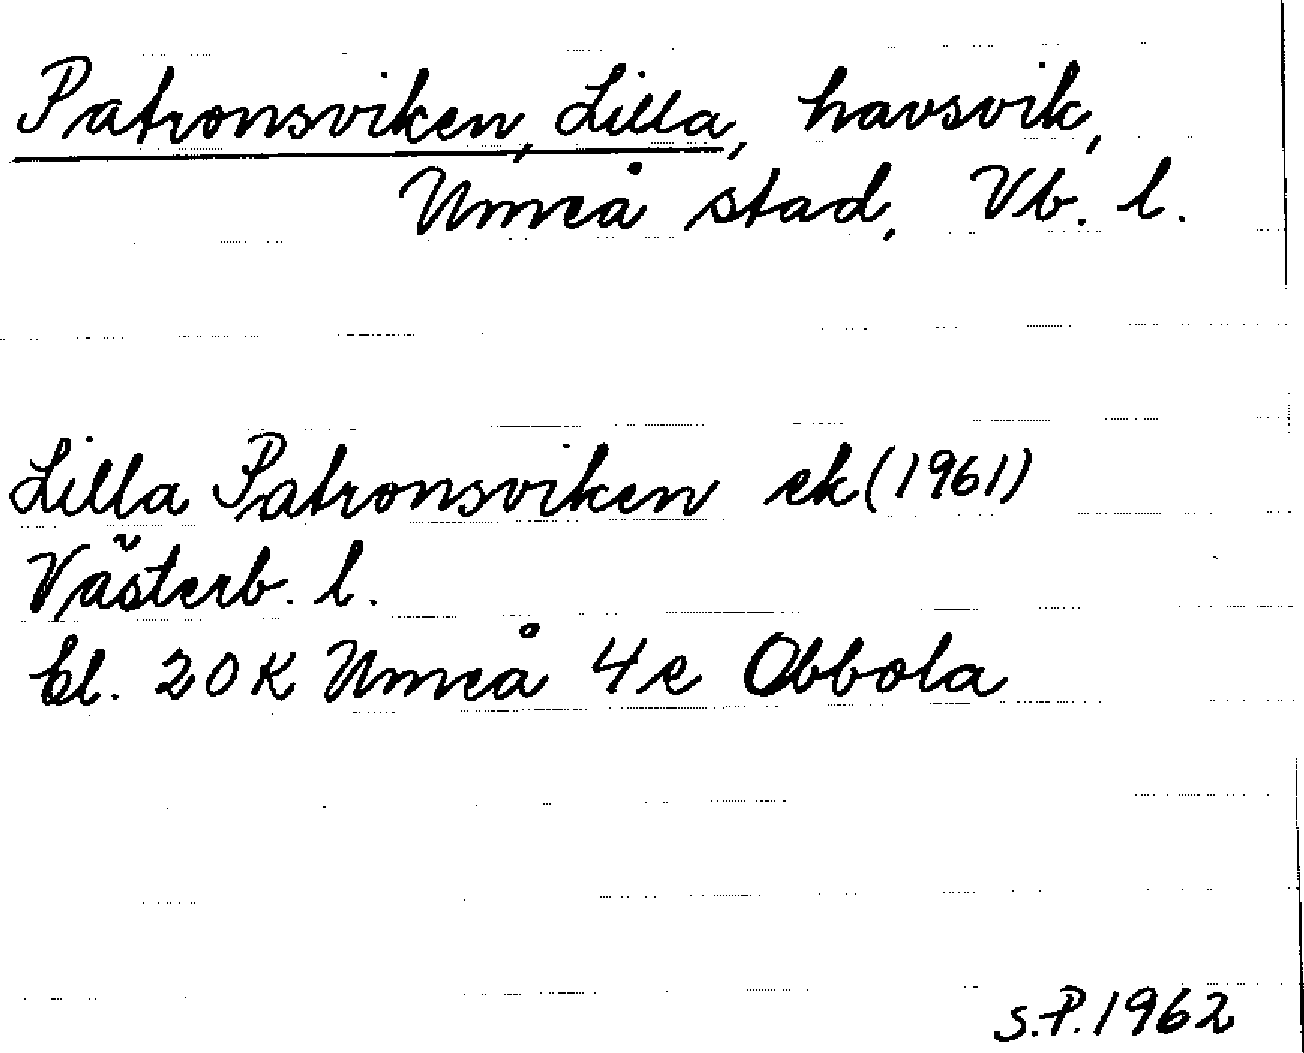 Patronsviken, Lilla, havsvik,
Umeå stad, Vb. l.
Lilla Patronsviken ek (1961)
Västerb. l.
bl. 20K Umeå 4e Obbola
S.P. 1962